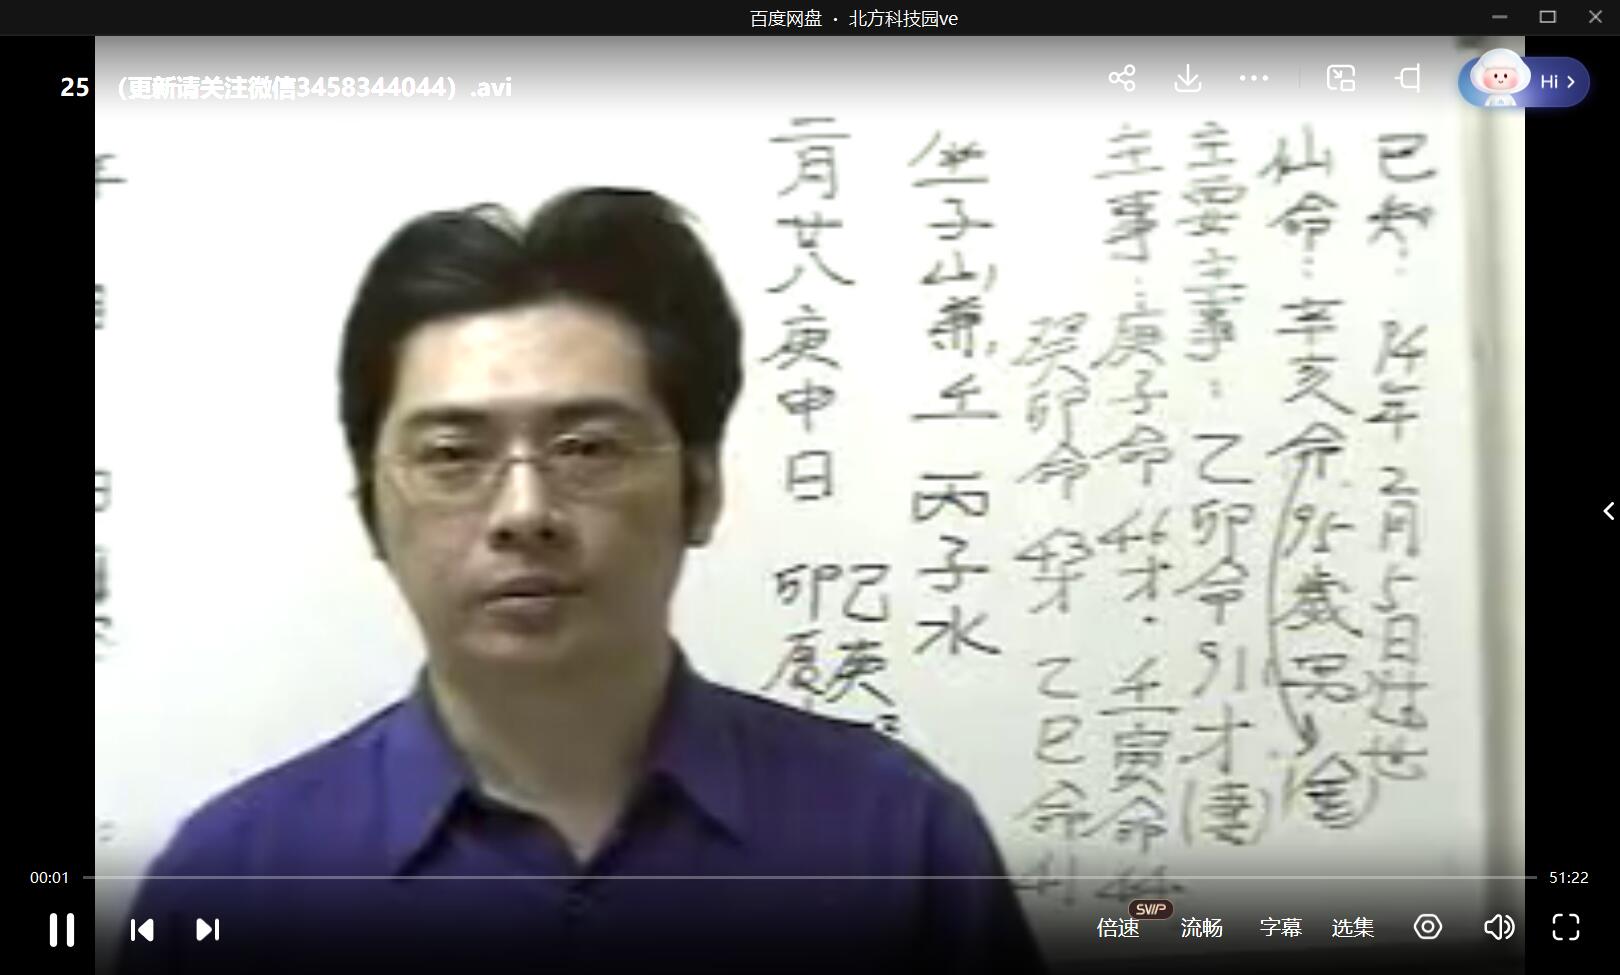 百度网盘 · 北方科技园ve
25 （更新请关注微信3458344044）.avi
Hi
已知：14年2月5日逝世
仙命：辛亥命95歲男(金)
主要主事：乙卯命91才(妻)
主事：庚子命46才．壬寅命44
癸卯命43才 乙巳命41
坐子山兼壬 丙子水
二月廿八庚申日
己
卯
00:01
51:22
SVIP
倍速
流畅
字幕
选集